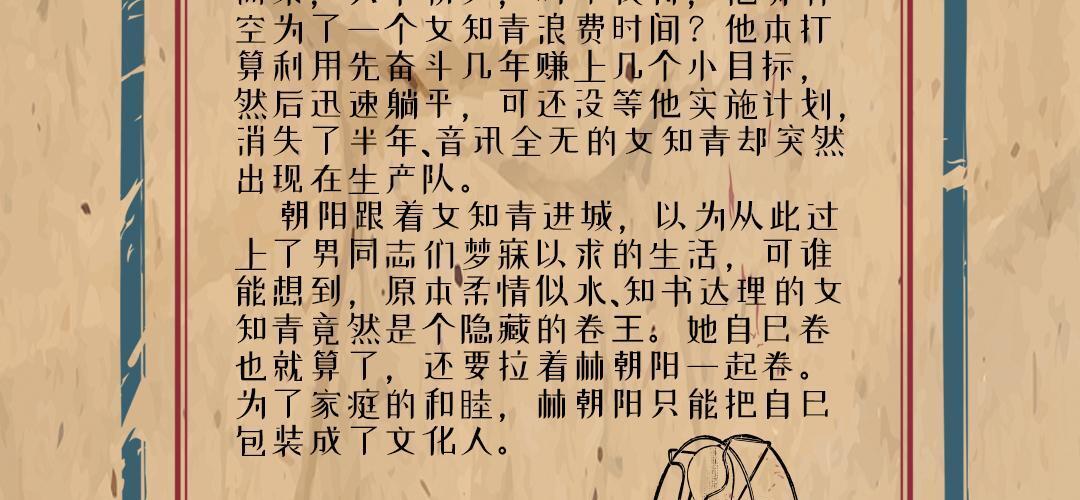 空为了一个女知青浪费时间？他本打
算利用先奋斗几年赚上几个小目标，
然后迅速躺平，可还没等他实施计划，
消失了半年、音讯全无的女知青却突然
出现在生产队。
朝阳跟着女知青进城，以为从此过
上了男同志们梦寐以求的生活，可谁
能想到，原本柔情似水、知书达理的女
知青竟然是个隐藏的卷王。她自己卷
也就算了，还要拉着林朝阳一起卷。
为了家庭的和睦，林朝阳只能把自己
包装成了文化人。